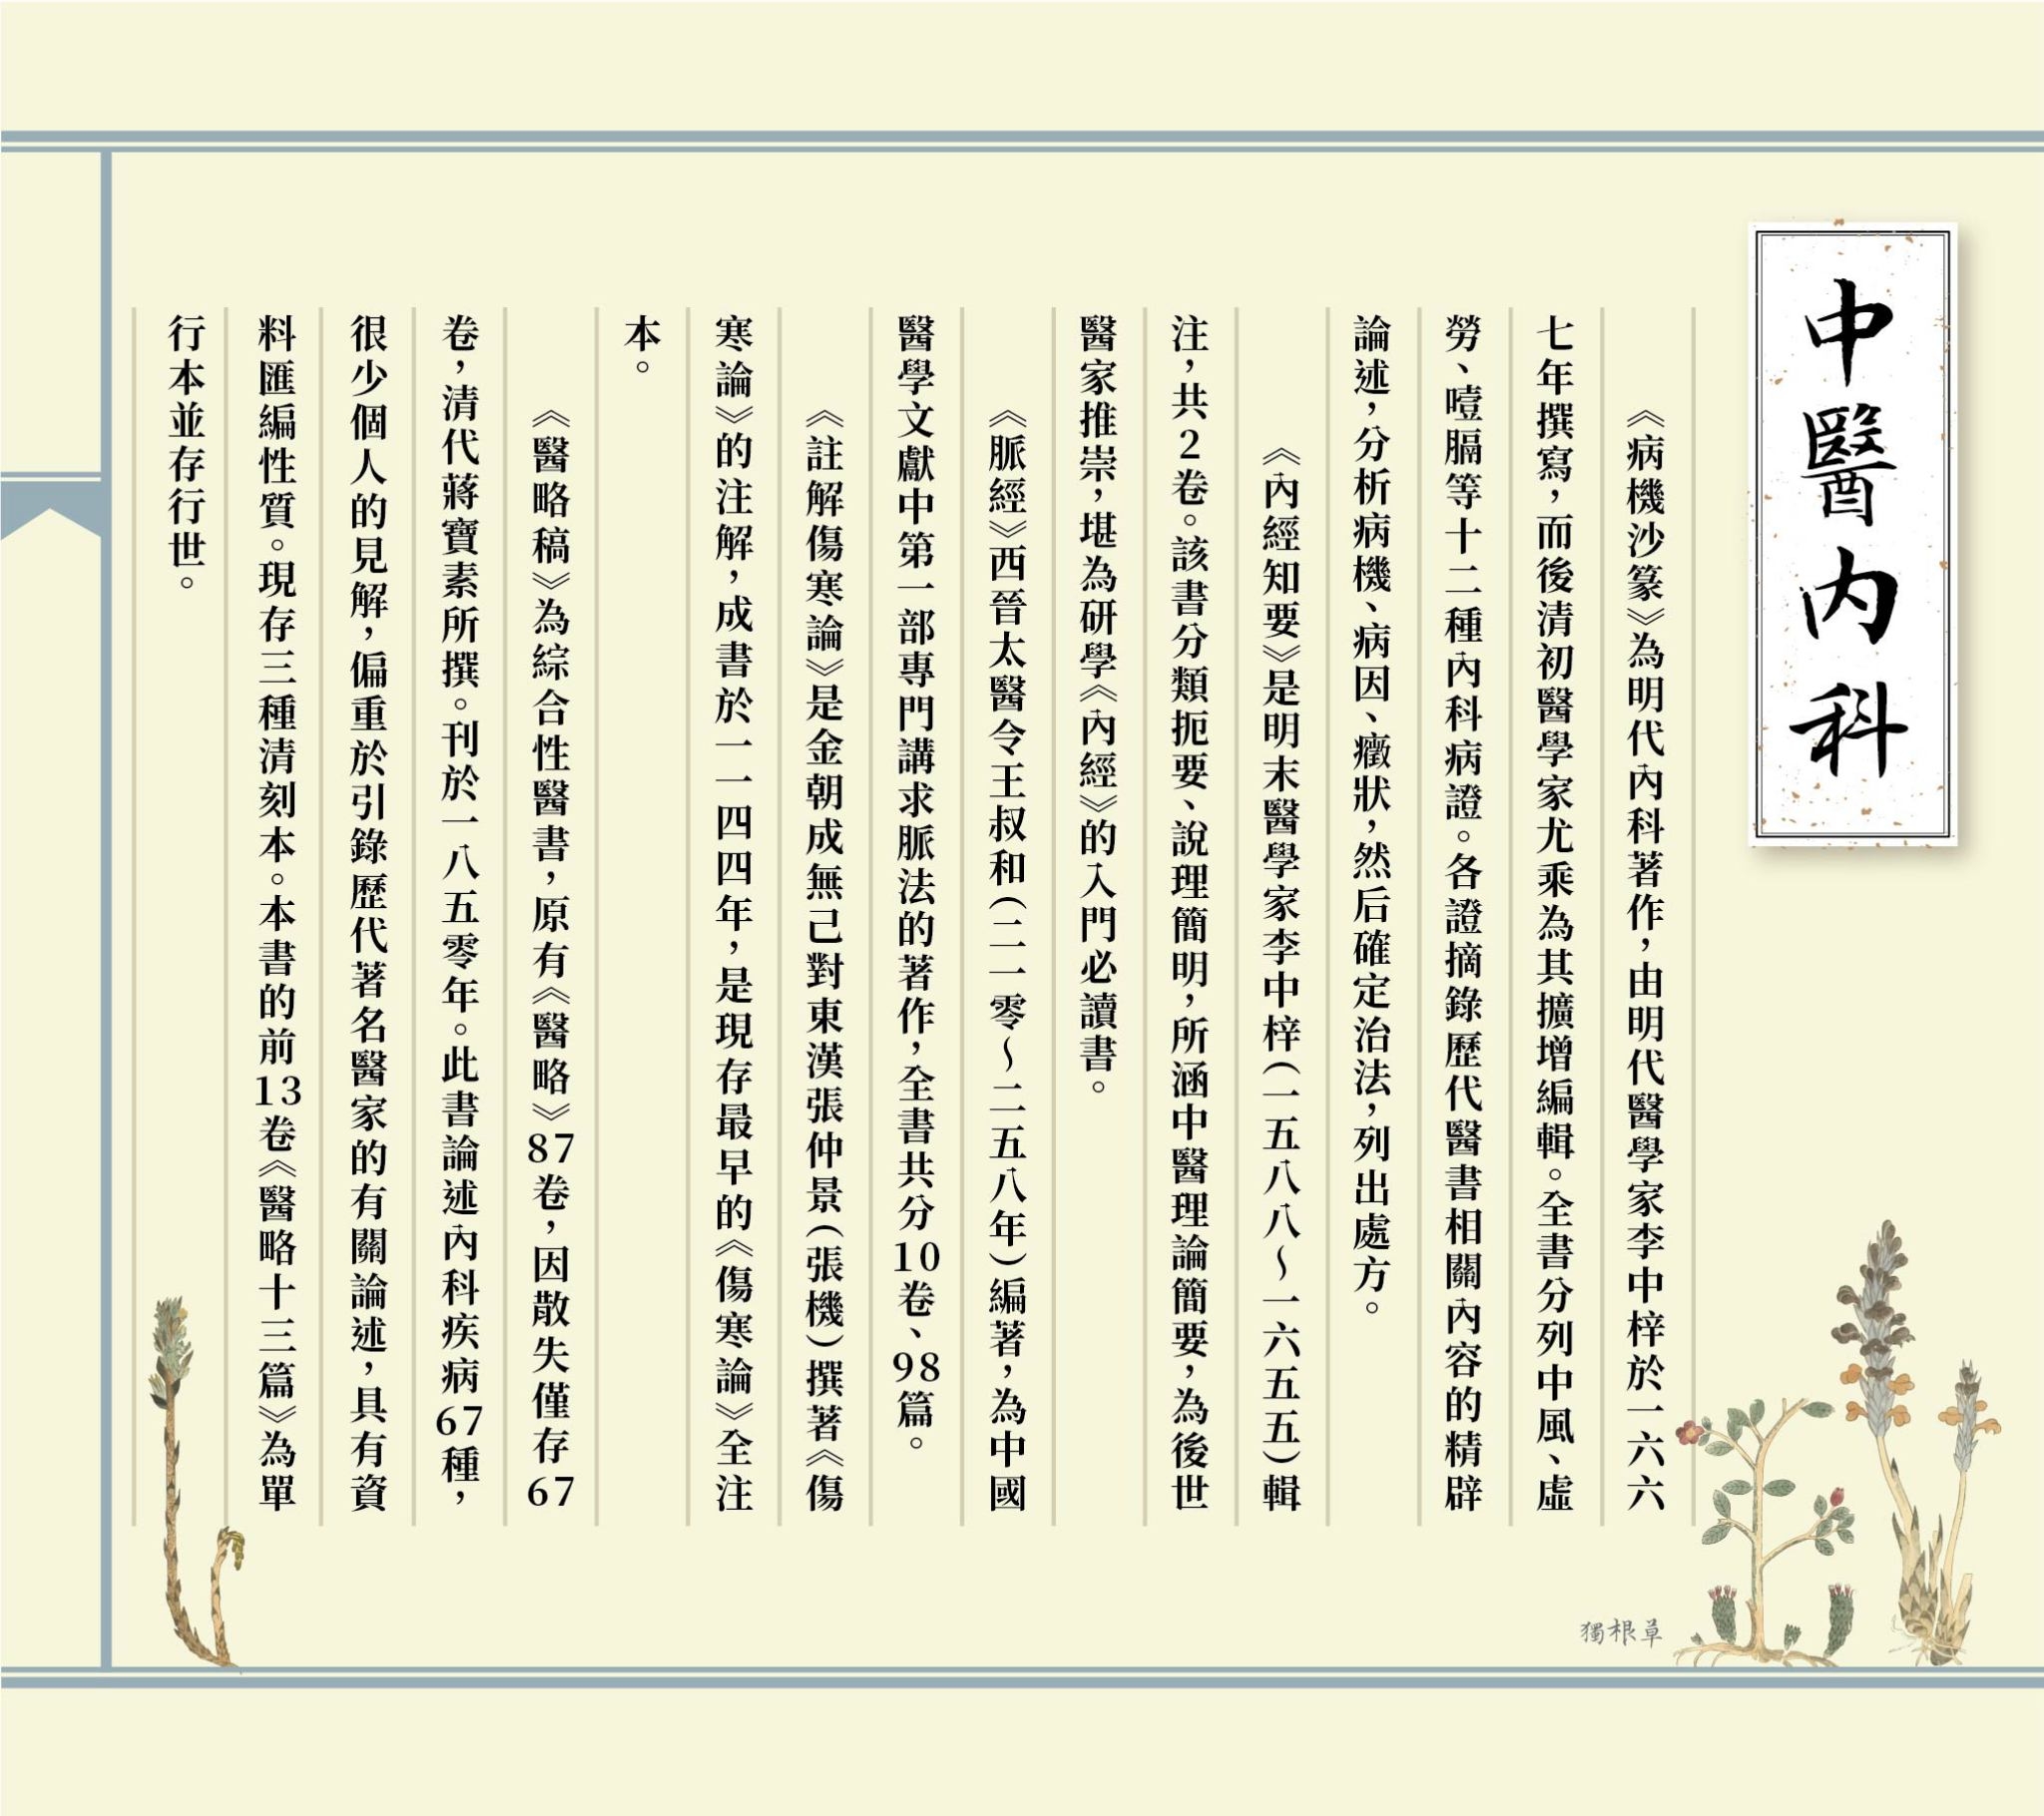 中醫內科
《病機沙篆》為明代內科著作，由明代醫學家李中梓於一六六
七年撰寫，而後清初醫學家尤乘為其擴增編輯。全書分列中風、虛
勞、噎膈等十二種內科病證。各證摘錄歷代醫書相關內容的精辟
論述，分析病機、病因、癥狀，然后確定治法，列出處方。
《內經知要》是明末醫學家李中梓（一五八八～一六五五）輯
注，共2卷。該書分類扼要、說理簡明，所涵中醫理論簡要，為後世
醫家推崇，堪為研學《內經》的入門必讀書。
《脈經》西晉太醫令王叔和（二一零～二五八年）編著，為中國
醫學文獻中第一部專門講求脈法的著作，全書共分10卷、98篇。
《註解傷寒論》是金朝成無己對東漢張仲景（張機）撰著《傷
寒論》的注解，成書於一一四四年，是現存最早的《傷寒論》全注
本。
《醫略稿》為綜合性醫書，原有《醫略》87卷，因散失僅存67
卷，清代蔣寶素所撰。刊於一八五零年。此書論述內科疾病67種，
很少個人的見解，偏重於引錄歷代著名醫家的有關論述，具有資
料匯編性質。現存三種清刻本。本書的前13卷《醫略十三篇》為單
行本並存行世。
獨根草